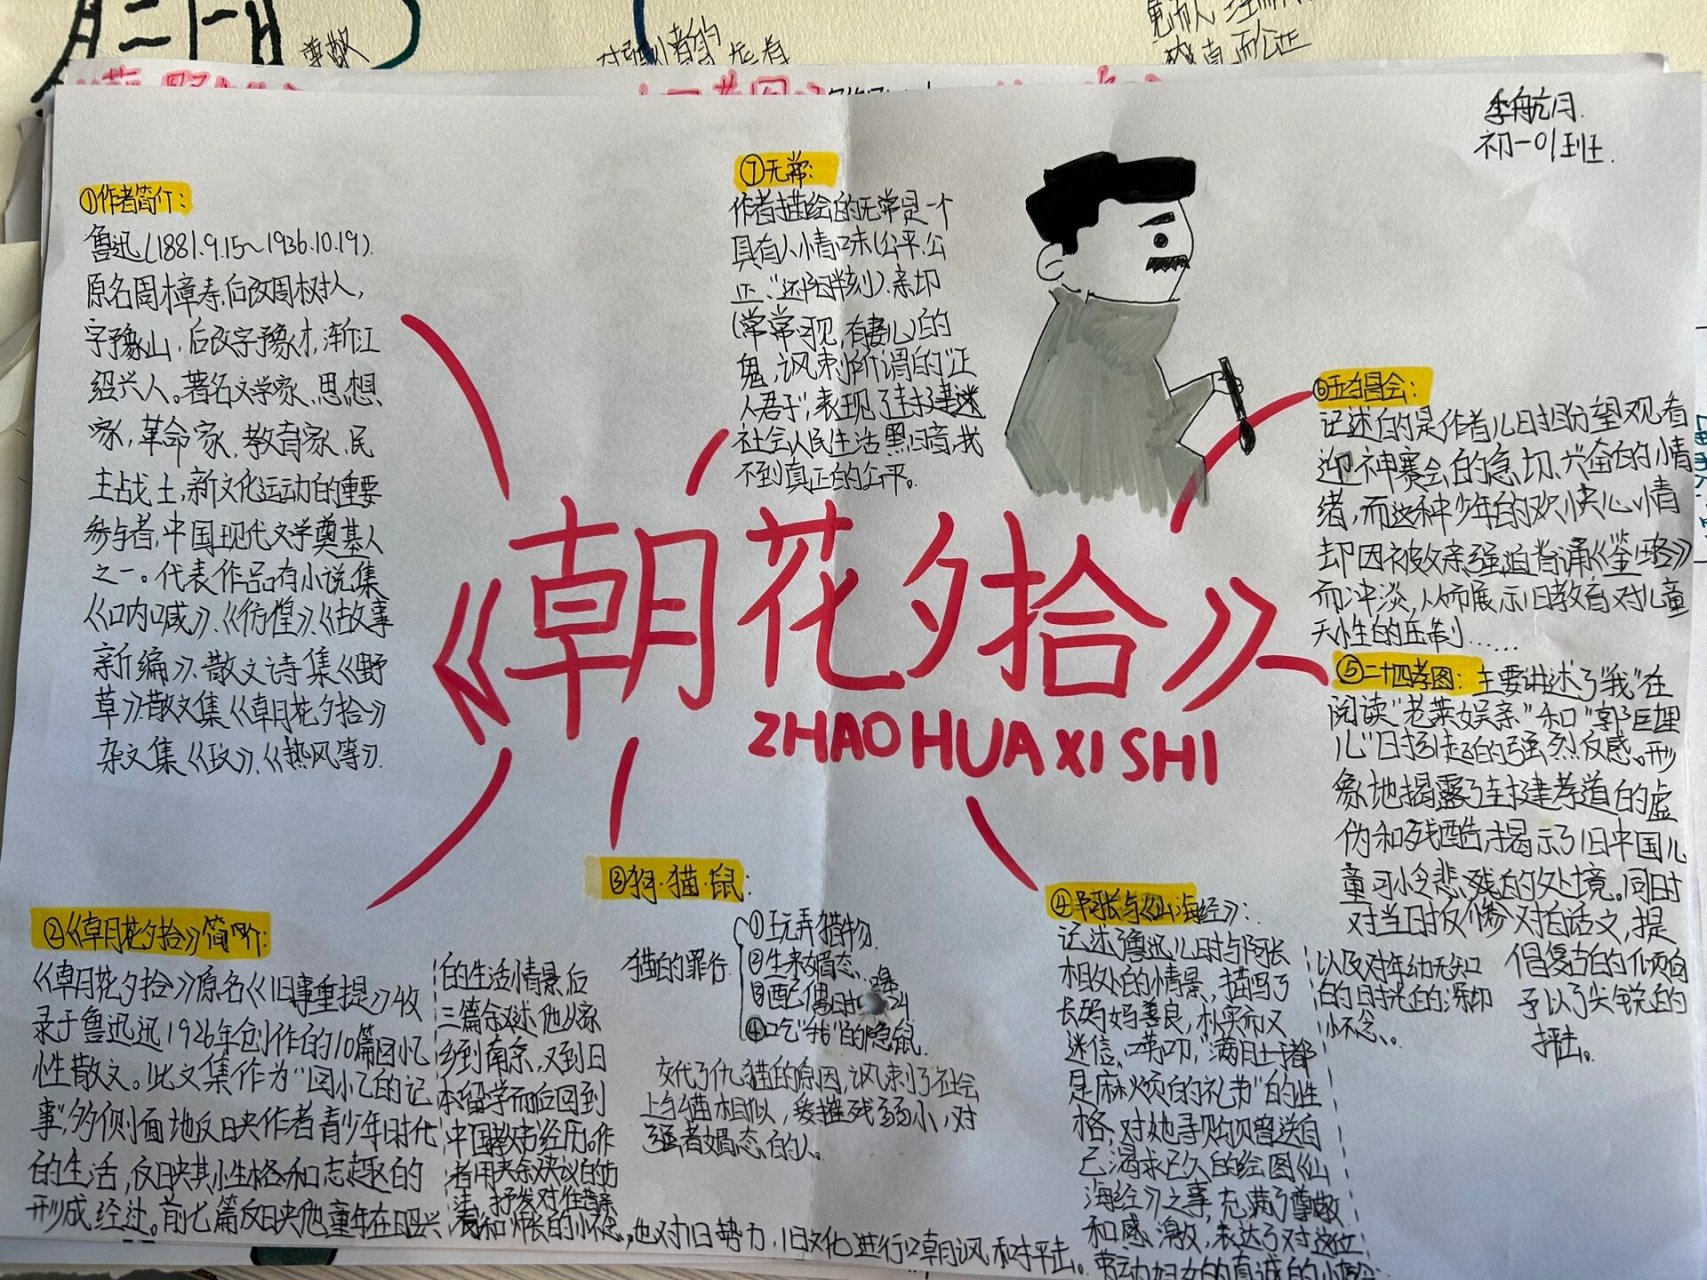 李航月
初一01班
《朝花夕拾》
ZHAO HUA XI SHI
①作者简介:
鲁迅(1881.9.15~1936.10.19).
原名周樟寿,后改周树人,
字豫山,后改字豫才,浙江
绍兴人。著名文学家、思想
家,革命家,教育家、民
主战士,新文化运动的重要
参与者,中国现代文学奠基人
之一。代表作品有小说集
《呐喊》、《彷徨》、《故事
新编》、散文诗集《野
草》、散文集《朝花夕拾》
杂文集《坟》、《热风等》.
②《朝花夕拾》简介:
《朝花夕拾》原名《旧事重提》收
录于鲁迅迅1926年创作的10篇回忆
性散文。此文集作为“回忆的记
事”,多侧面地反映作者青少年时代
的生活,反映其性格和志趣的
形成经过。前七篇反映他童年在绍兴
的生活情景,后
三篇叙述他从家
乡到南京,又到日
本留学而后回到
中国教书经历。作
者用夹叙夹议的方
法,抒发对往昔亲
友和师长的怀念,也对旧势力,旧文化进行了嘲讽和抨击。
③狗·猫·鼠:
猫的罪行
①玩弄猎物
②生来媚态
③配偶时嗥叫
④吃“我”的隐鼠
交代了仇猫的原因,讽刺了社会
上与猫相似,爱摧残弱小,对
强者媚态的人。
④阿长与《山海经》:
记述了鲁迅儿时与阿长
相处的情景,描写了
长妈妈善良,朴实而又
迷信、唠叨,“满肚子都
是麻烦的礼节”的性
格,对她寻购赠送自
己渴求已久的绘图《山
海经》之事,充满了尊敬
和感激,表达了对这位
劳动妇女的真诚的
以及对年幼无知
的时光的深切
怀念。
⑤二十四孝图:主要讲述了“我”在
阅读“老莱娱亲”和“郭巨埋
儿”时引起的强烈反感。形
象地揭露了封建孝道的虚
伪和残酷,揭示了旧中国儿
童可怜悲残的处境。同时
对当时反对白话文,提
倡复古的倾向
予以了尖锐的
抨击。
⑥五猖会:
记述的是作者儿时盼望观看
迎神赛会的急切、兴奋的情
绪,而这种少年的欢快心情
却因被父亲强迫背诵《鉴略》
而冲淡,从而展示旧教育对儿童
天性的压制......
⑦无常:
作者描绘的无常是一个
具有人情味(公平、公
正、“还阳半刻”)、亲切
(常常可见,有妻儿)的
鬼,讽刺所谓的“正
人君子”,表现了封建迷
社会人民生活黑暗,找
不到真正的公平。